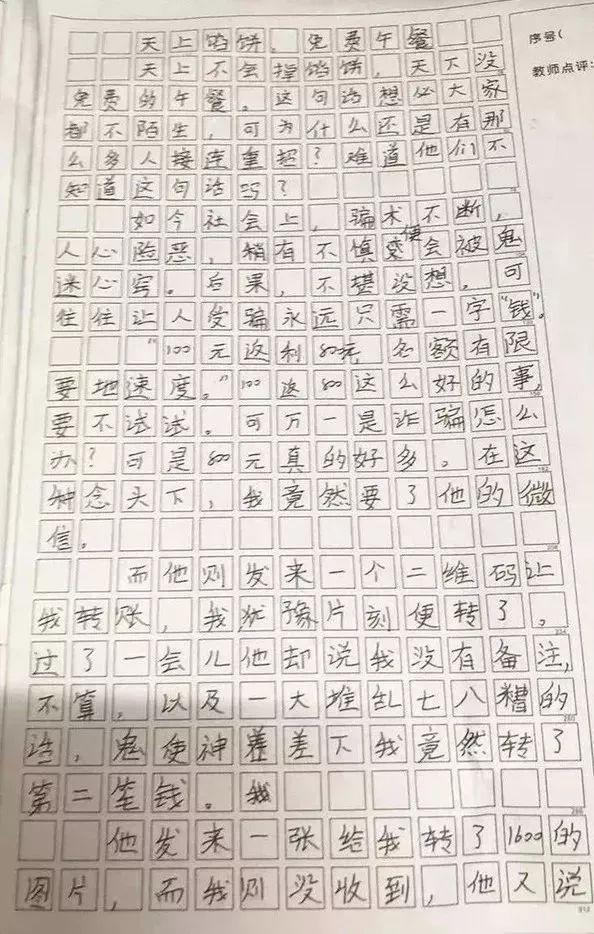 天上馅饼,免费午餐
序号(
天上不会掉馅饼,天下没
教师点评:
免费的午餐。这句话想必大家
都不陌生,可为什么还是有那
么多人接连重蹈?难道他们不
知道这句话吗?
如今社会上,骗术不断,
人心险恶,稍有不慎便会被鬼
迷心窍。后果,不堪没想。可
往往让人受骗永远只需一字"钱"。
"100元返利800元,名额有限
要地速度。"100返800这么好的事,
要不试试。可万一是诈骗怎么
办?可是800元真的好多。在这
种念头下,我竟然要了他的微
信。
而他则发来一个二维码让
我转账,我犹豫片刻便转了。
过了一会儿他却说我没有备注,
不算,以及一大堆乱七八糟的
话,鬼使神差差下我竟然转了
第二笔钱。我
他发来一张给我转了1600的
图片,而我则没收到,他又说